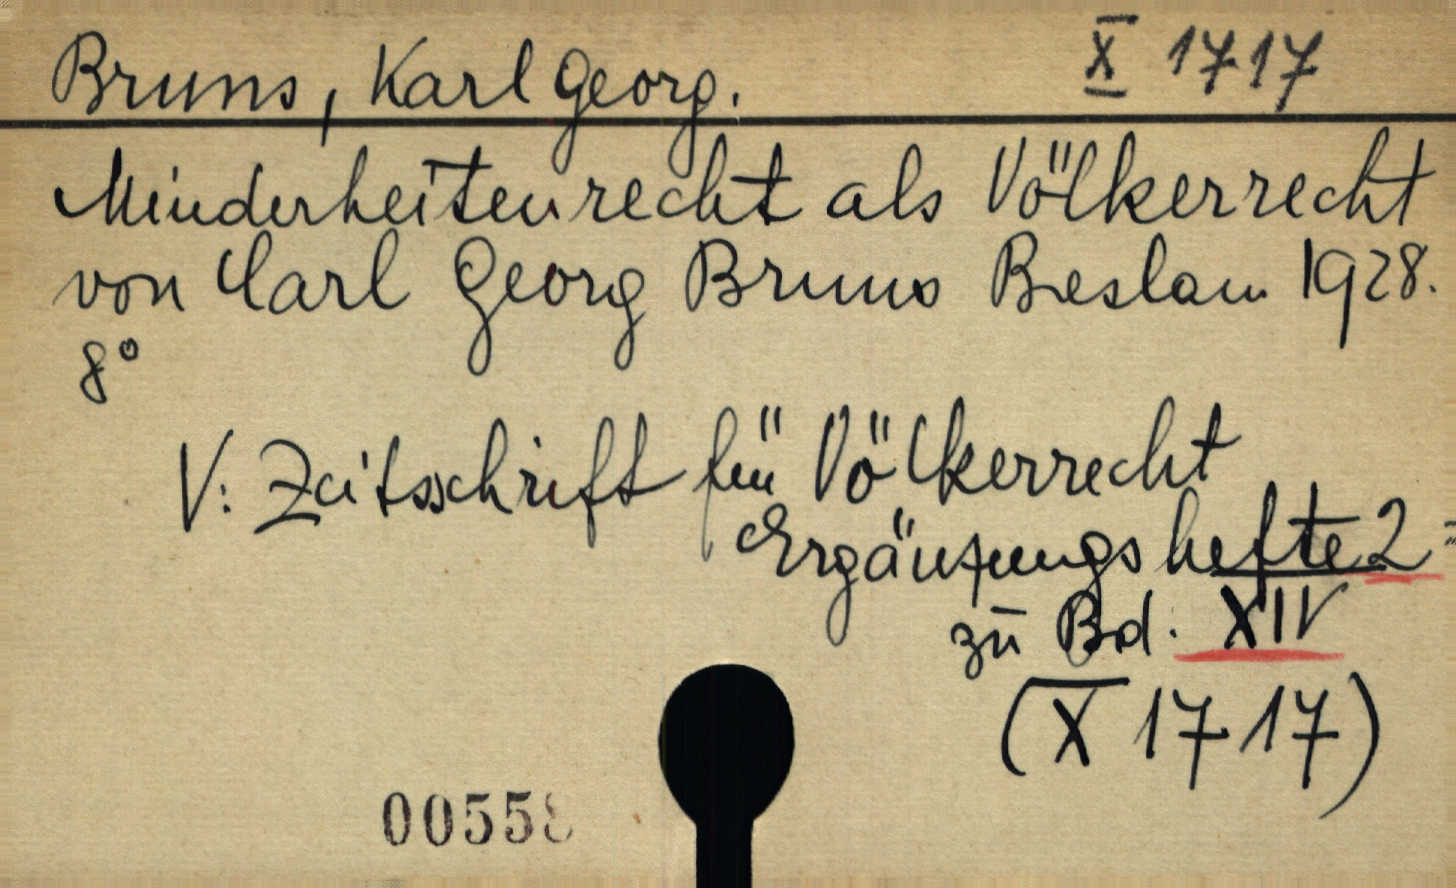 Bruns, Karl Georg. X 1717
Minderheitenrecht als Völkerrecht
von Carl Georg Bruns Beslau 1928.
8°
V: Zeitsschrift für Völkerrecht
Ergänzungshefte 2=
zu Bd. XIV
(X 1717)
00558